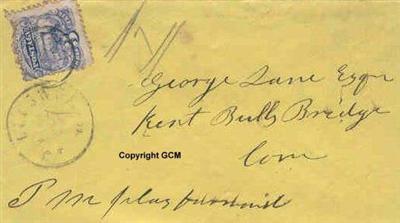 George Lane Esqr
Kent Bulls Bridge
Con
Copyright GCM
P M please forward